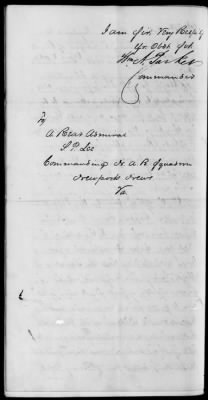 I am Sir, Very Resply
Yr Obdt Svt
Wm A. Parker
Commander
To
A. Rear Admiral
S. P. Lee
Commanding N. A. B. Squadron
Newports News
Va.